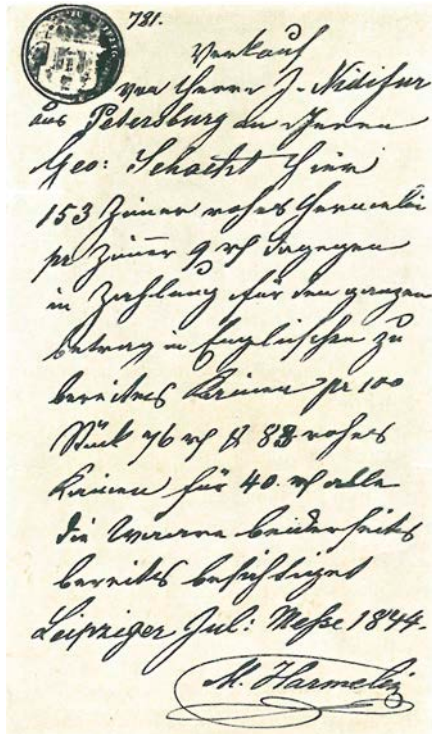 781.
Verkauf
von Herrn J. Nidisur
aus Petersburg an Herrn
Geo: Schacht hier
153 Zimer rohes Hermelin
pr Zimer 9 rh dagegen
in Zahlung für den ganzen
betrag in Englischen zu
bereitets Kaninen pr 100
Stück 76 rh & 83 rohes
Kaninen für 40. rh alle
die Waare beiderseits
bereits besichtiget
Leipziger Jub: Messe 1844.
M. Harmelin